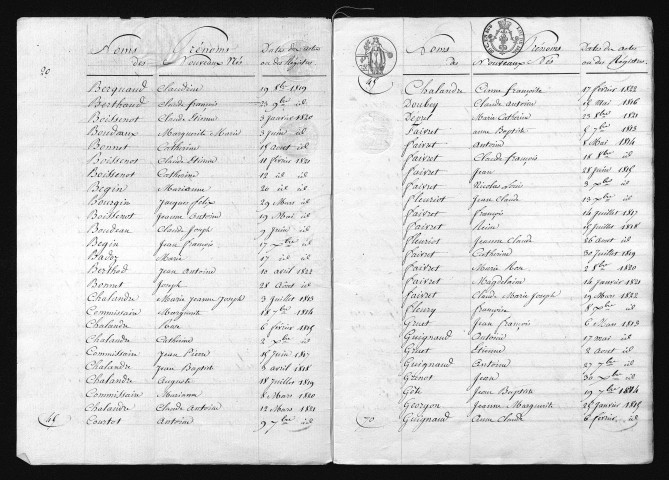 Noms Prénoms Dates des actes
des Nouveaux Nés ou des Registres
20
Bergnaud Claudine 19 8bre 1819
Berthaud Claude françois 23 9bre id
Boissenot Claude Etienne 3 janvier 1820
Boudeaux Marguerite Marie 3 juin id
Bonnet Catherine 15 aout id
Boissenot Claude Etienne 11 février 1821
Boissenot Catherine 12 id id
Begin Marianne 20 id id
Bourgin Jacques felix 29 Mars id
Boissenot Jeanne Antoine 19 Mai id
Boudeau Claude Joseph 9 juin id
Begin Jean françois 17 Xbre id
Badoz Marie 17 id id
Berthod Jean Antoine 10 avril 1822
Bonnet Joseph 28 Aout id
Chalandre Marie Jeanne Joseph 3 juillet 1813
Commissaire Marguerite 18 7bre 1814
Chalandre 6 février 1815
Chalandre Catherine 2 Xbre id
Commissaire Jean Pierre 15 juin 1817
Chalandre Jean Baptiste 6 avril 1818
Chalandre Auguste 18 juillet 1819
Commissaire Marianne 8 Mars 1820
Chalandre Claude Antoine 12 Mars 1821
Courtot Antoine 9 7bre id
45
Noms Prénoms Dates des actes
des Nouveaux Nés ou des Registres
45
Chalandre Anne françoise 17 février 1822
Doubey Claude Antoine 12 Mai 1816
Dépret Marie Catherine 23 8bre 1821
faivret anne Baptiste 5 7bre 1813
faivret Antoine 8 Mai 1814
faivret Claude françois 18 8bre id
faivret Jean 28 juin 1815
faivret Nicolas Louis 3 Xbre id
fleuriot Jean Claude 13 Xbre id
faivret françois 14 juillet 1817
faivret Reine 15 juillet 1818
fleuriot Jeanne Claude 26 aout id
faivret Catherine 30 juillet 1819
faivret Marie 2 8bre 1820
faivret Magdelaine 14 janvier 1821
faivret Claude Marie Joseph 19 Mars 1822
fleury françoise 8 Xbre id
Gruet Jean françois 6 Mars 1813
Guignaud Antoine 17 mai id
Gruet Etienne 2 aout id
Guignaud Antoine 27 7bre id
Grenot Jean 30 Xbre id
Gête Jean Baptiste 19 7bre 1814
Georgon Jeanne Marguerite 25 janvier 1815
Guignaud Anne Claude 6 février id
70